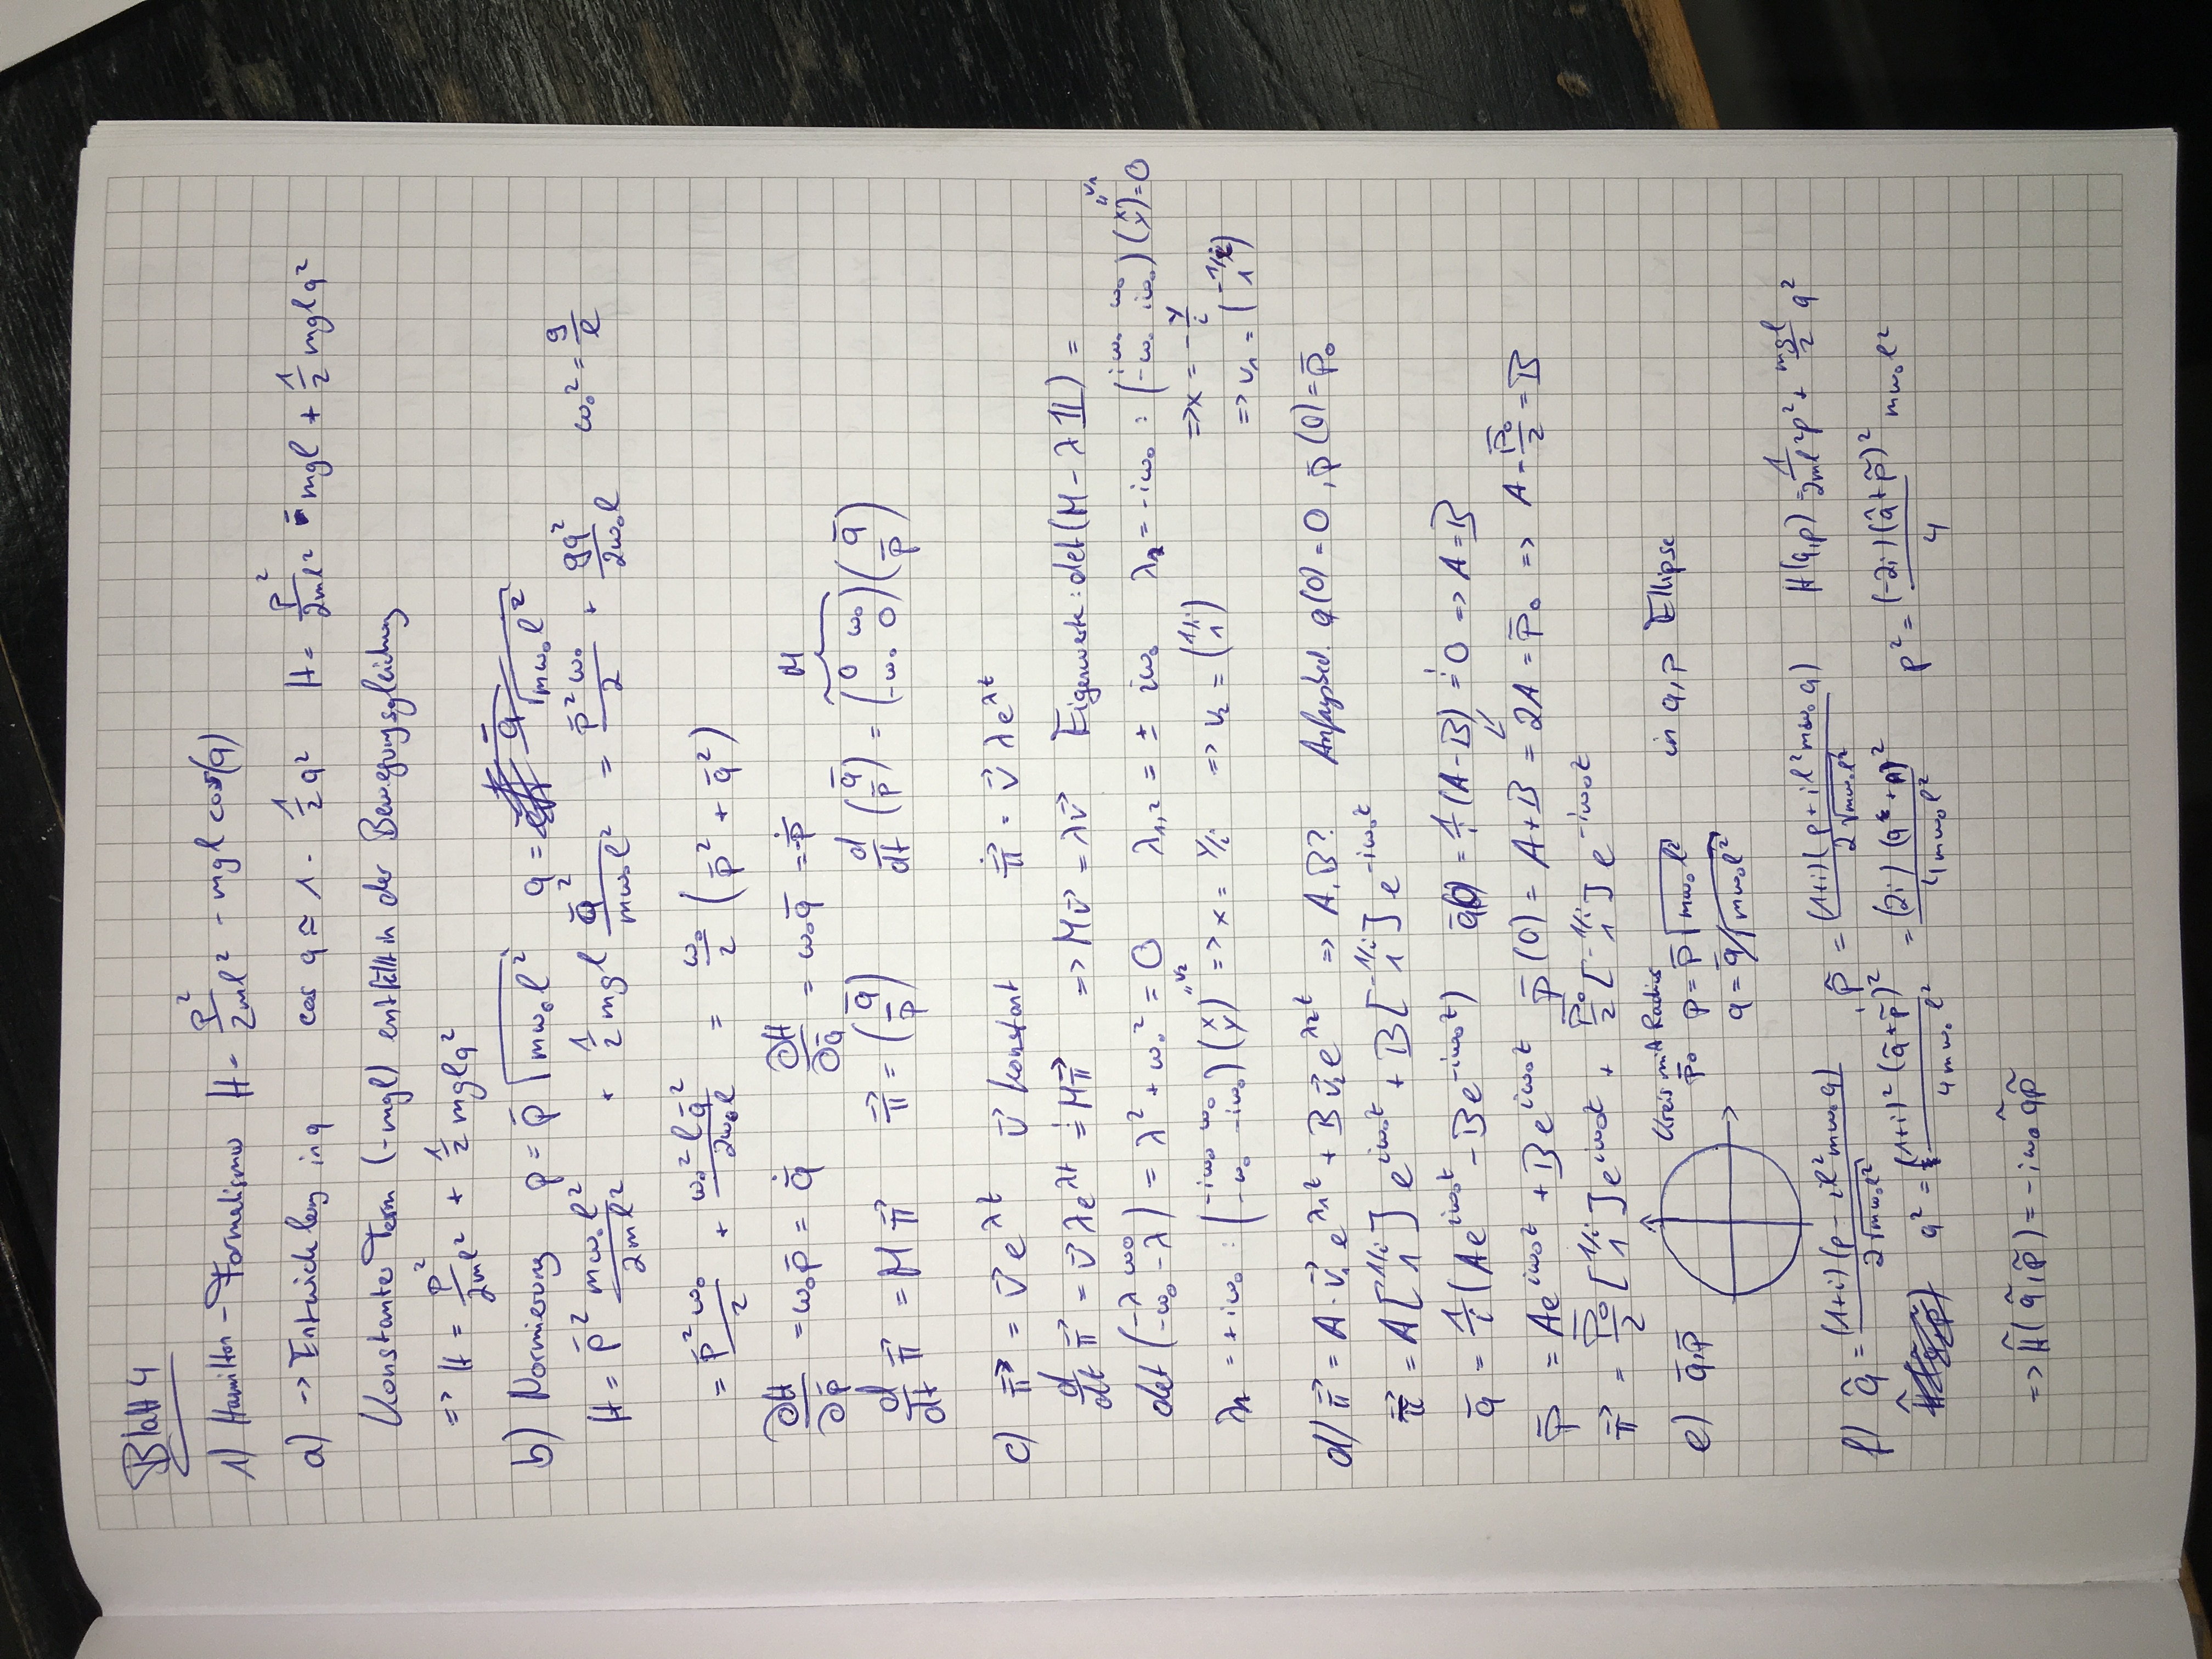 Blatt 4
1) Hamilton-Formalismus H = p²/2ml² - mgl cos(q)
a) -> Entwicklung in q cos q ≈ 1 - 1/2 q² H = p²/2ml² - mgl + 1/2 mglq²
Konstanter Term (-mgl) entfällt in der Bewegungsgleichung
=> H = p²/2ml² + 1/2 mglq²
b) Normierung p = p̄ √(mω₀l²) q = q̄/√(mω₀l²)
H = p̄² mω₀l²/2ml² + 1/2 mgl q̄²/mω₀l² = p̄²ω₀/2 + gq̄²/2ω₀l ω₀² = g/l
= p̄²ω₀/2 + ω₀²lq̄²/2ω₀l = ω₀/2 (p̄² + q̄²)
∂H/∂p̄ = ω₀p̄ = q̄̇ ∂H/∂q̄ = ω₀q̄ = -p̄̇ M
d/dt π⃗ = M π⃗ π⃗ = (q̄ p̄) d/dt (q̄ p̄) = (0 ω₀ -ω₀ 0)(q̄ p̄)
c) π⃗ = v⃗ e^λt v⃗ konstant π⃗̇ = v⃗ λe^λt
d/dt π⃗ = v⃗ λe^λt =! Mπ⃗ => Mv⃗ = λv⃗ Eigenwerte: det(M - λ𝟙) =
det(-λ ω₀ -ω₀ -λ) = λ² + ω₀² = 0 λ₁,₂ = ± iω₀ λ₂ = -iω₀ : (iω₀ ω₀ -ω₀ iω₀)(x y) = 0 "v₁
=> x = -y/i
λ₁ = +iω₀ : (-iω₀ ω₀ -ω₀ -iω₀)(x y) "v₂ => x = y/i => v₂ = (1/i 1)
=> v₁ = (-1/i 1)
d) π⃗ = A · v⃗₁ e^λ₁t + B v⃗₂ e^λ₂t => A, B? Anfangsbed. q(0) = 0, p̄(0) = p̄₀
π⃗ = A[1/i 1] e^iω₀t + B[-1/i 1] e^-iω₀t
q̄ = 1/i (Ae^iω₀t - Be^-iω₀t) q̄(0) = 1/i (A-B) =! 0 => A = B
p̄ = Ae^iω₀t + Be^iω₀t p̄(0) = A+B = 2A = p̄₀ => A = p̄₀/2 = B
π⃗ = p̄₀/2 [1/i 1] e^iω₀t + p̄₀/2 [-1/i 1] e^-iω₀t
e) q̄,p̄ Kreis mit Radius p̄₀ p = p̄√(mω₀l²) in q,p Ellipse
q = q̄/√(mω₀l²)
f) q̃ = (1+i)(p - il²mω₀q)/2√(mω₀l²) , p̃ = (1+i)(p + il²mω₀q)/2√(mω₀l²) H(q,p) = 1/2ml² p² + mgl/2 q²
q² = (1+i)²(q̃+p̃)²/4mω₀l² = (2i)(q̃+p̃)²/4mω₀l² p² = (-2i)(q̃+p̃)²/4 mω₀l²
=> H̃(q̃,p̃) = -iω₀ q̃p̃